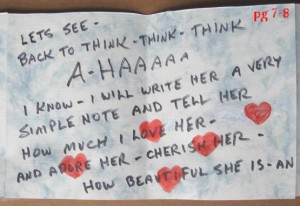 LETS SEE -
Pg 7-8
BACK TO THINK - THINK - THINK
A-HAAAAA
I KNOW - I WILL WRITE HER A VERY
SIMPLE NOTE AND TELL HER
HOW MUCH I LOVE HER -
AND ADORE HER - CHERISH HER -
HOW BEAUTIFUL SHE IS - AN